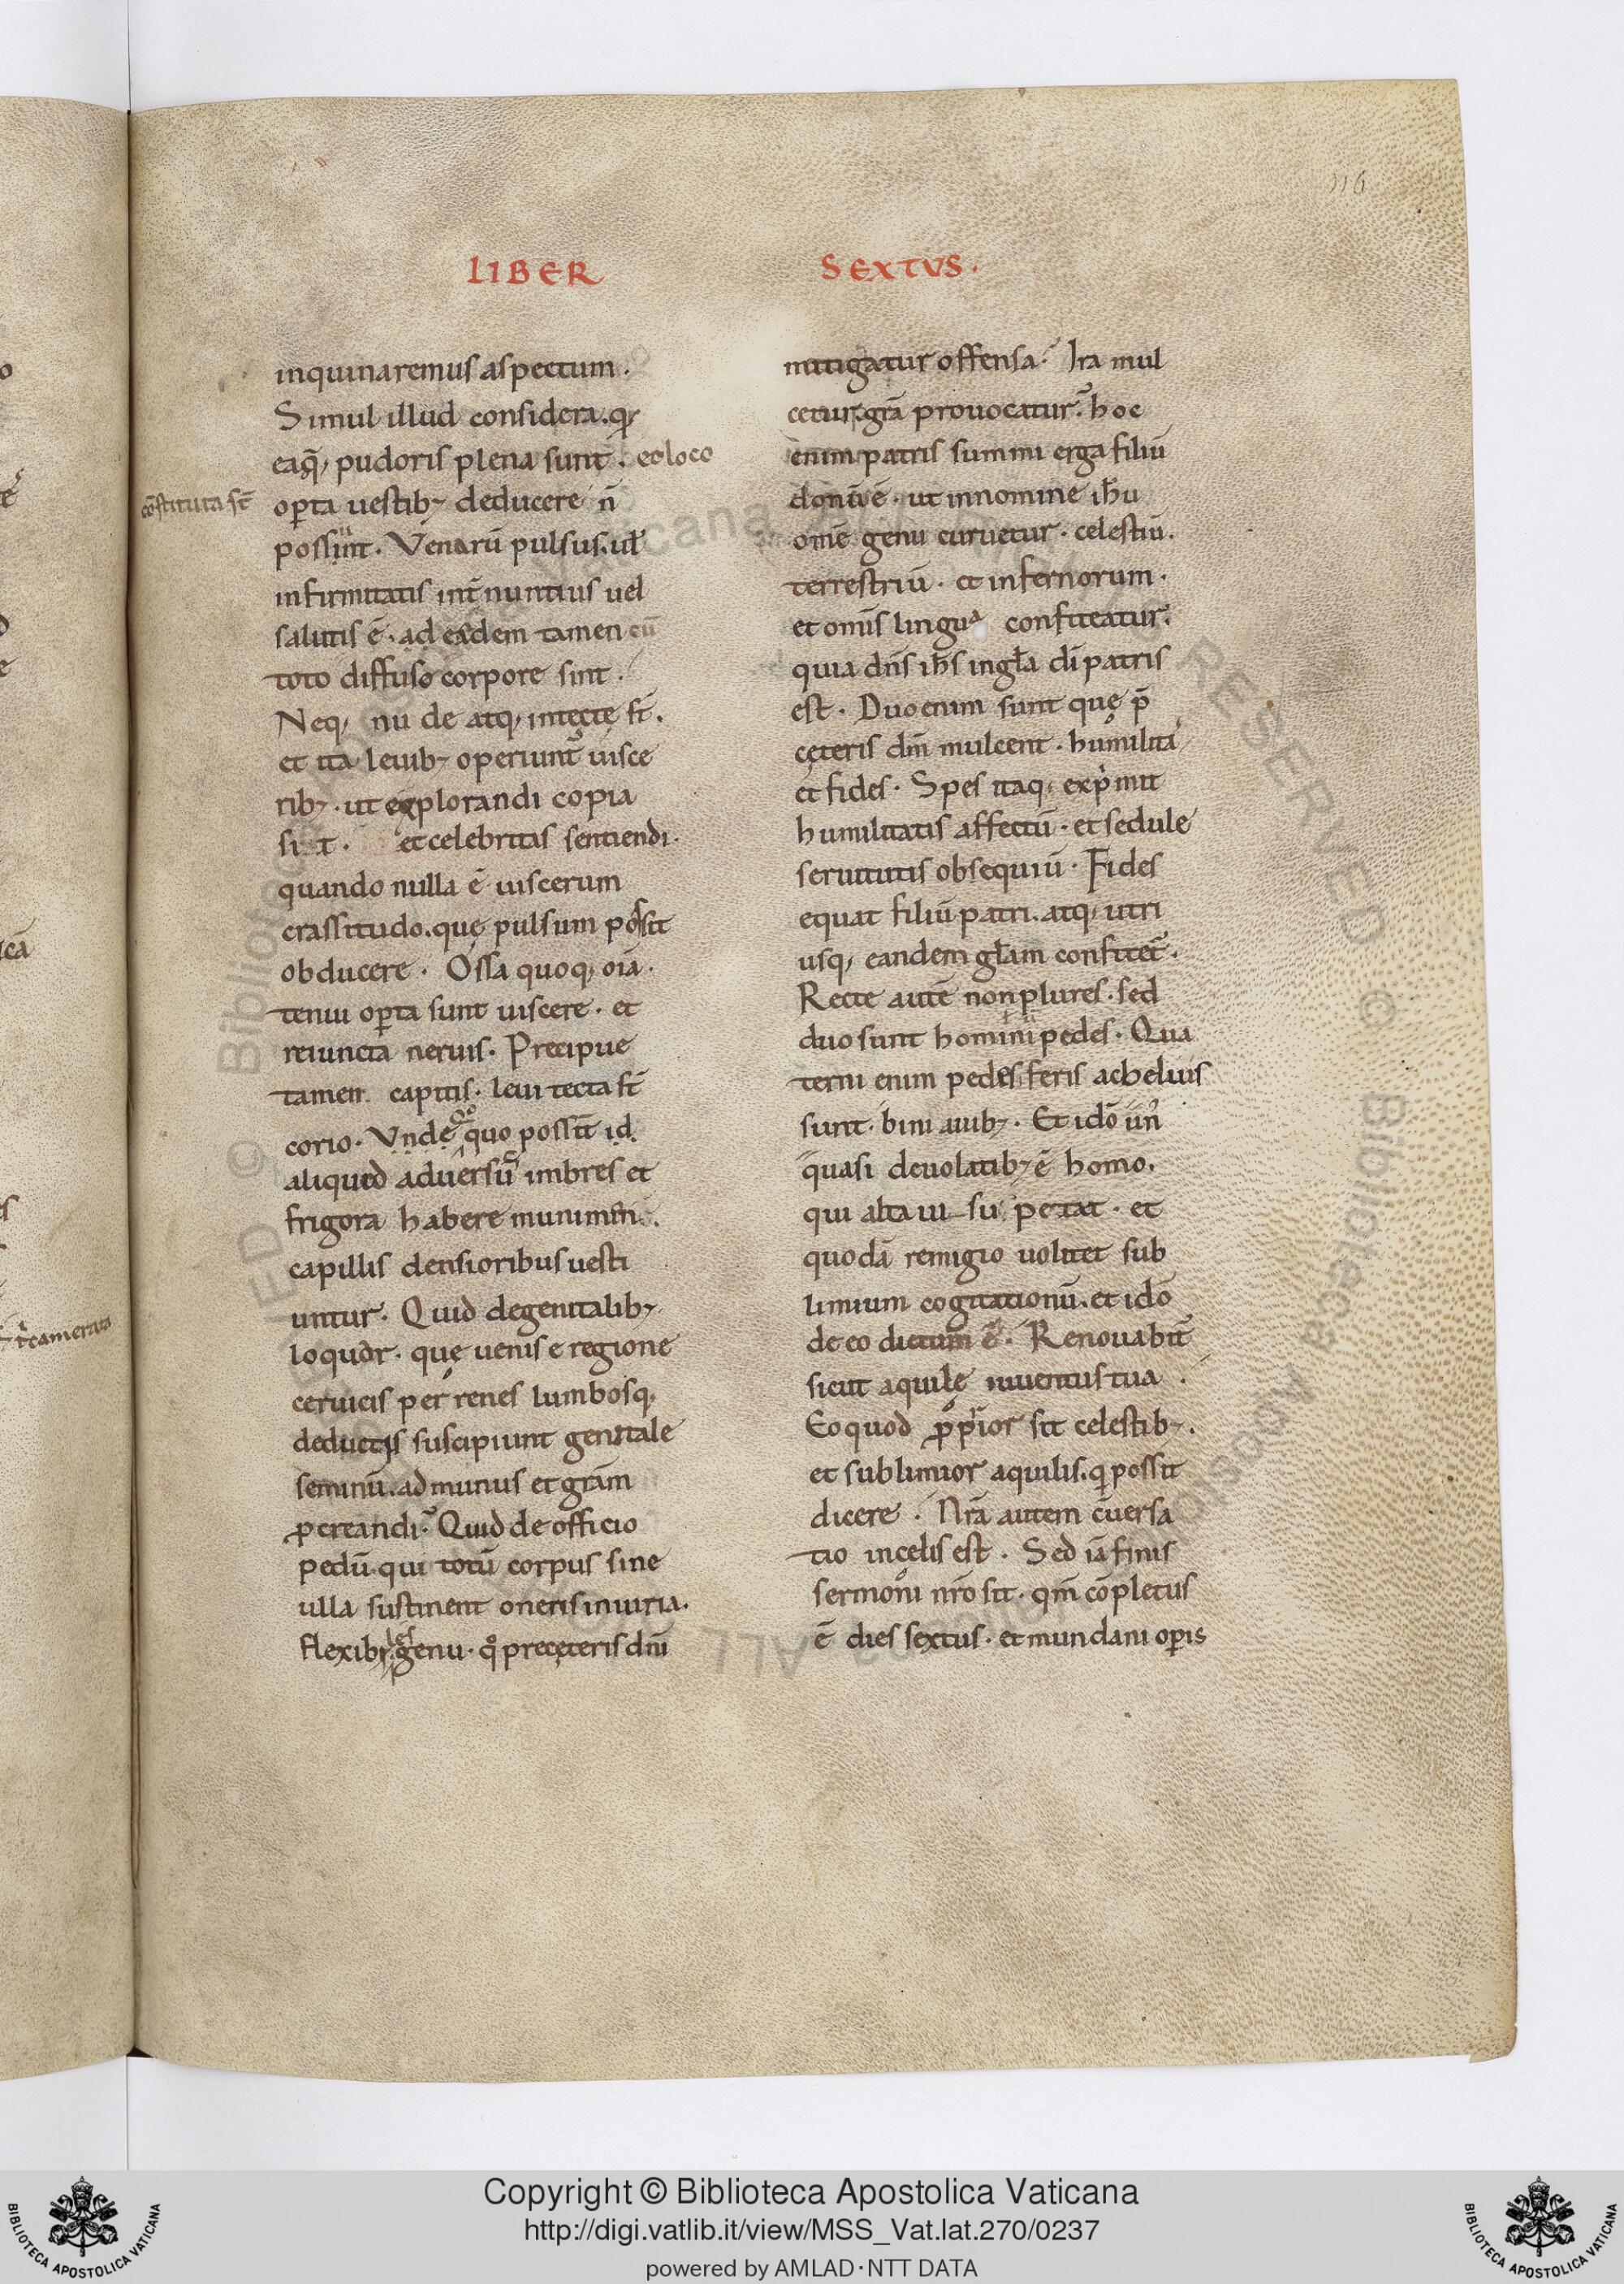 116
LIBER SEXTVS.
inquinaremus aspectum.
Simul illud considera. qꝛ
eaq̄, pudoris plena sunt. eo loco
cōstituta st̄
oꝑta uestib; deducere n̄
possint. Venarū pulsus. ut
infirmitatis int̄nuntius uel
salutis ē. ad eadem tamen cū
toto diffuso corpore sint.
Neq, nudę atq, intectę st̄.
et ita leuib; operiunt᷑ uisce
rib;. ut explorandi copia
sit. et celebritas sentiendi.
quando nulla ē uiscerum
crassitudo. quę pulsum possit
obducere. Ossa quoq, oīa.
tenui oꝑta sunt uiscere. et
reiuncta neruis. Precipue
tamen capitis. leui tecta st̄
corio. Vnde quo possit id
aliquid aduersū imbres et
frigora habere
capillis densioribus uesti
untur. Quid de genitalib;
loquar. quę uenis e regione
ceruicis per renes lumbosq,
deductis suscipiunt genitale
seminū. ad munus et grām
ꝓcreandi. Quid de officio
pedū. qui totū corpus sine
ulla sustinent oneris iniuria.
genu. qͦ precęteris dn̄i
mitigatur offensa. Ira mul
cetur. grā prouocatur. hoc
enim patris summi erga filiū
donū ē. ut in nomine ih̄u
om̄e genu curuetur. celestiū.
terrestriū. et infernorum.
et om̄is lingua confiteatur.
quia dn̄s ih̄s in gl̄a dī patris
est. Duo enim sunt quę p̄
cęteris dn̄m mulcent. humilita
et fides. Spes itaq, expͥmit
humilitatis affectū. et sedule
seruitutis obsequiū. Fides
equat filiū patri. atq, utri
usq, eandem gl̄am confitet᷑.
Recte autē non plures. sed
duo sunt homini pedes. Qua
terni enim pedes feris ac beluis
sunt. bini auib;. Et idō un᷑
quasi de uolatib; ē homo.
qui alta uisu petat. et
quodā remigio uolitet sub
limium cogitationū. et idō
de eo dictum ē. Renouabit᷑
sicut aquilę iuuentus tua.
Eo quod ꝓpͥor sit celestib;.
et sublimior aquilis. qͥ possit
dicere. Nr̄a autem c̄uersa
tio in celis est. Sed iā finis
sermoni nr̄o sit. qm̄ cōpletus
ē dies sextus. et mundani oꝑis
Copyright © Biblioteca Apostolica Vaticana
http://digi.vatlib.it/view/MSS_Vat.lat.270/0237
powered by AMLAD·NTT DATA
BIBLIOTECA APOSTOLICA VATICANA
BIBLIOTECA APOSTOLICA VATICANA